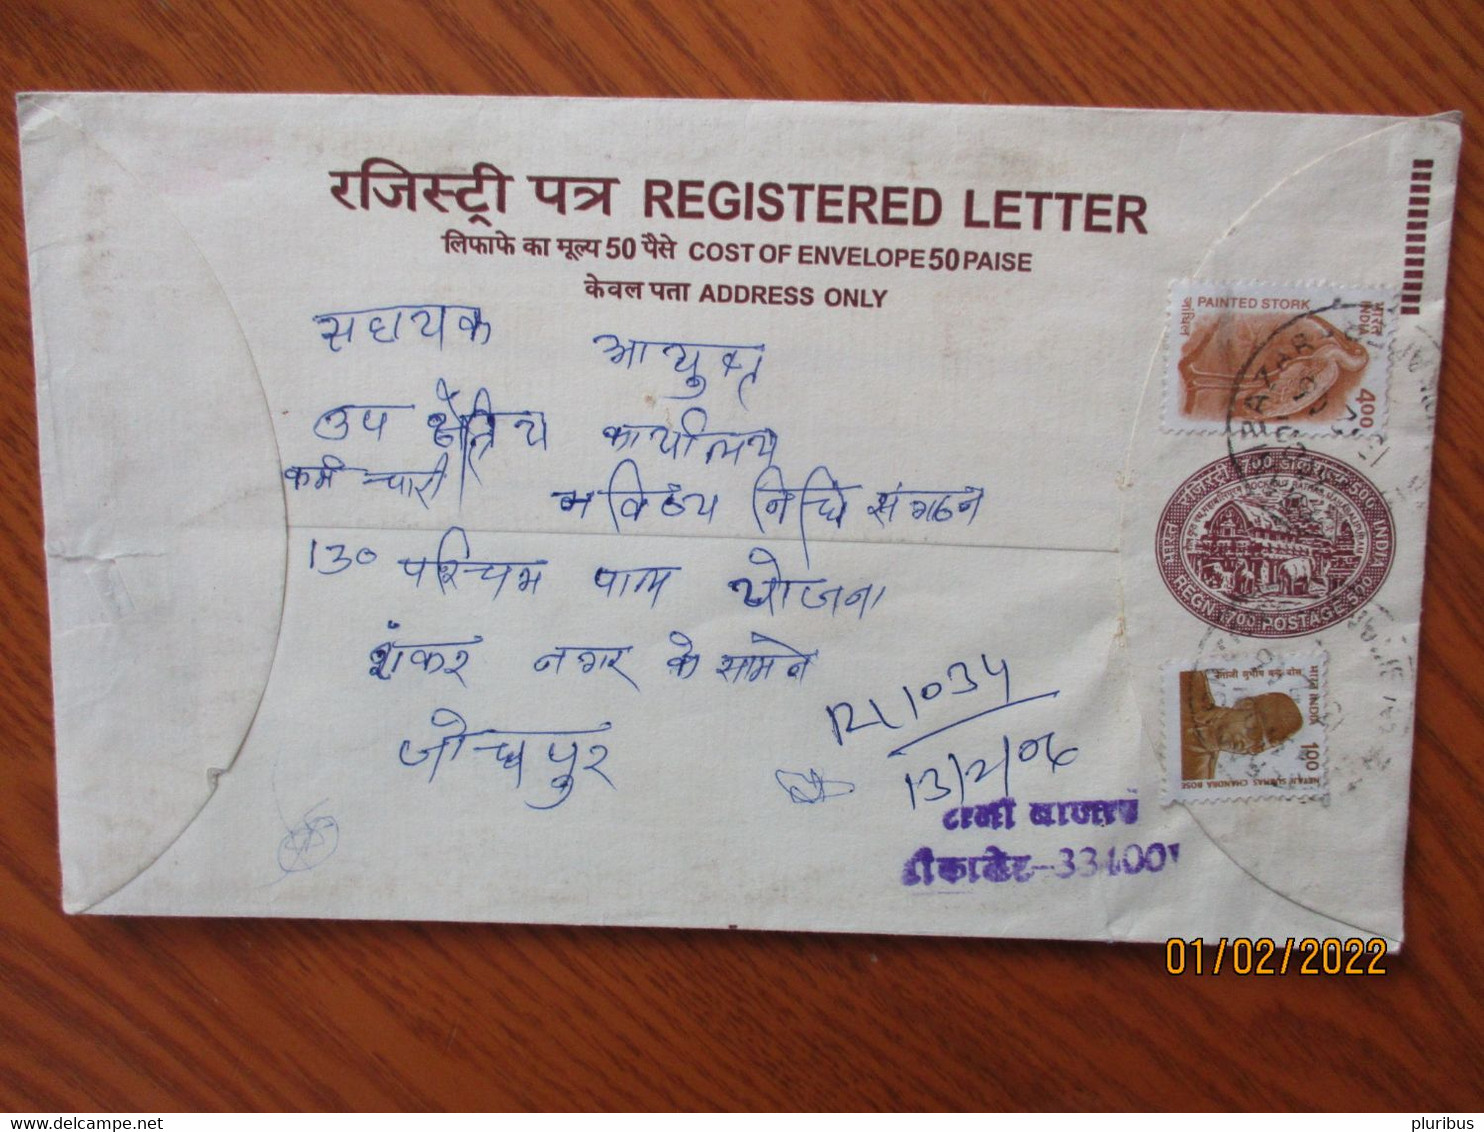 रजिस्ट्री पत्र REGISTERED LETTER
लिफाफे का मूल्य 50 पैसे COST OF ENVELOPE 50 PAISE
केवल पता ADDRESS ONLY
सहायक आयुक्त
उप क्षेत्रिय कार्यालय
कर्मचारी भविष्य निधि संगठन
130 पश्चिम पाल योजना
शंकर नगर के सामने
जोधपुर
RL 1034
13/2/06
बीकानेर-334001
PAINTED STORK
भारत INDIA
400
INDIA
REGN 1700 POSTAGE 500
नेताजी सुभाष चन्द्र बोस
भारत INDIA
100
NETAJI SUBHAS CHANDRA BOSE
01/02/2022
pluribus
delcampe.net